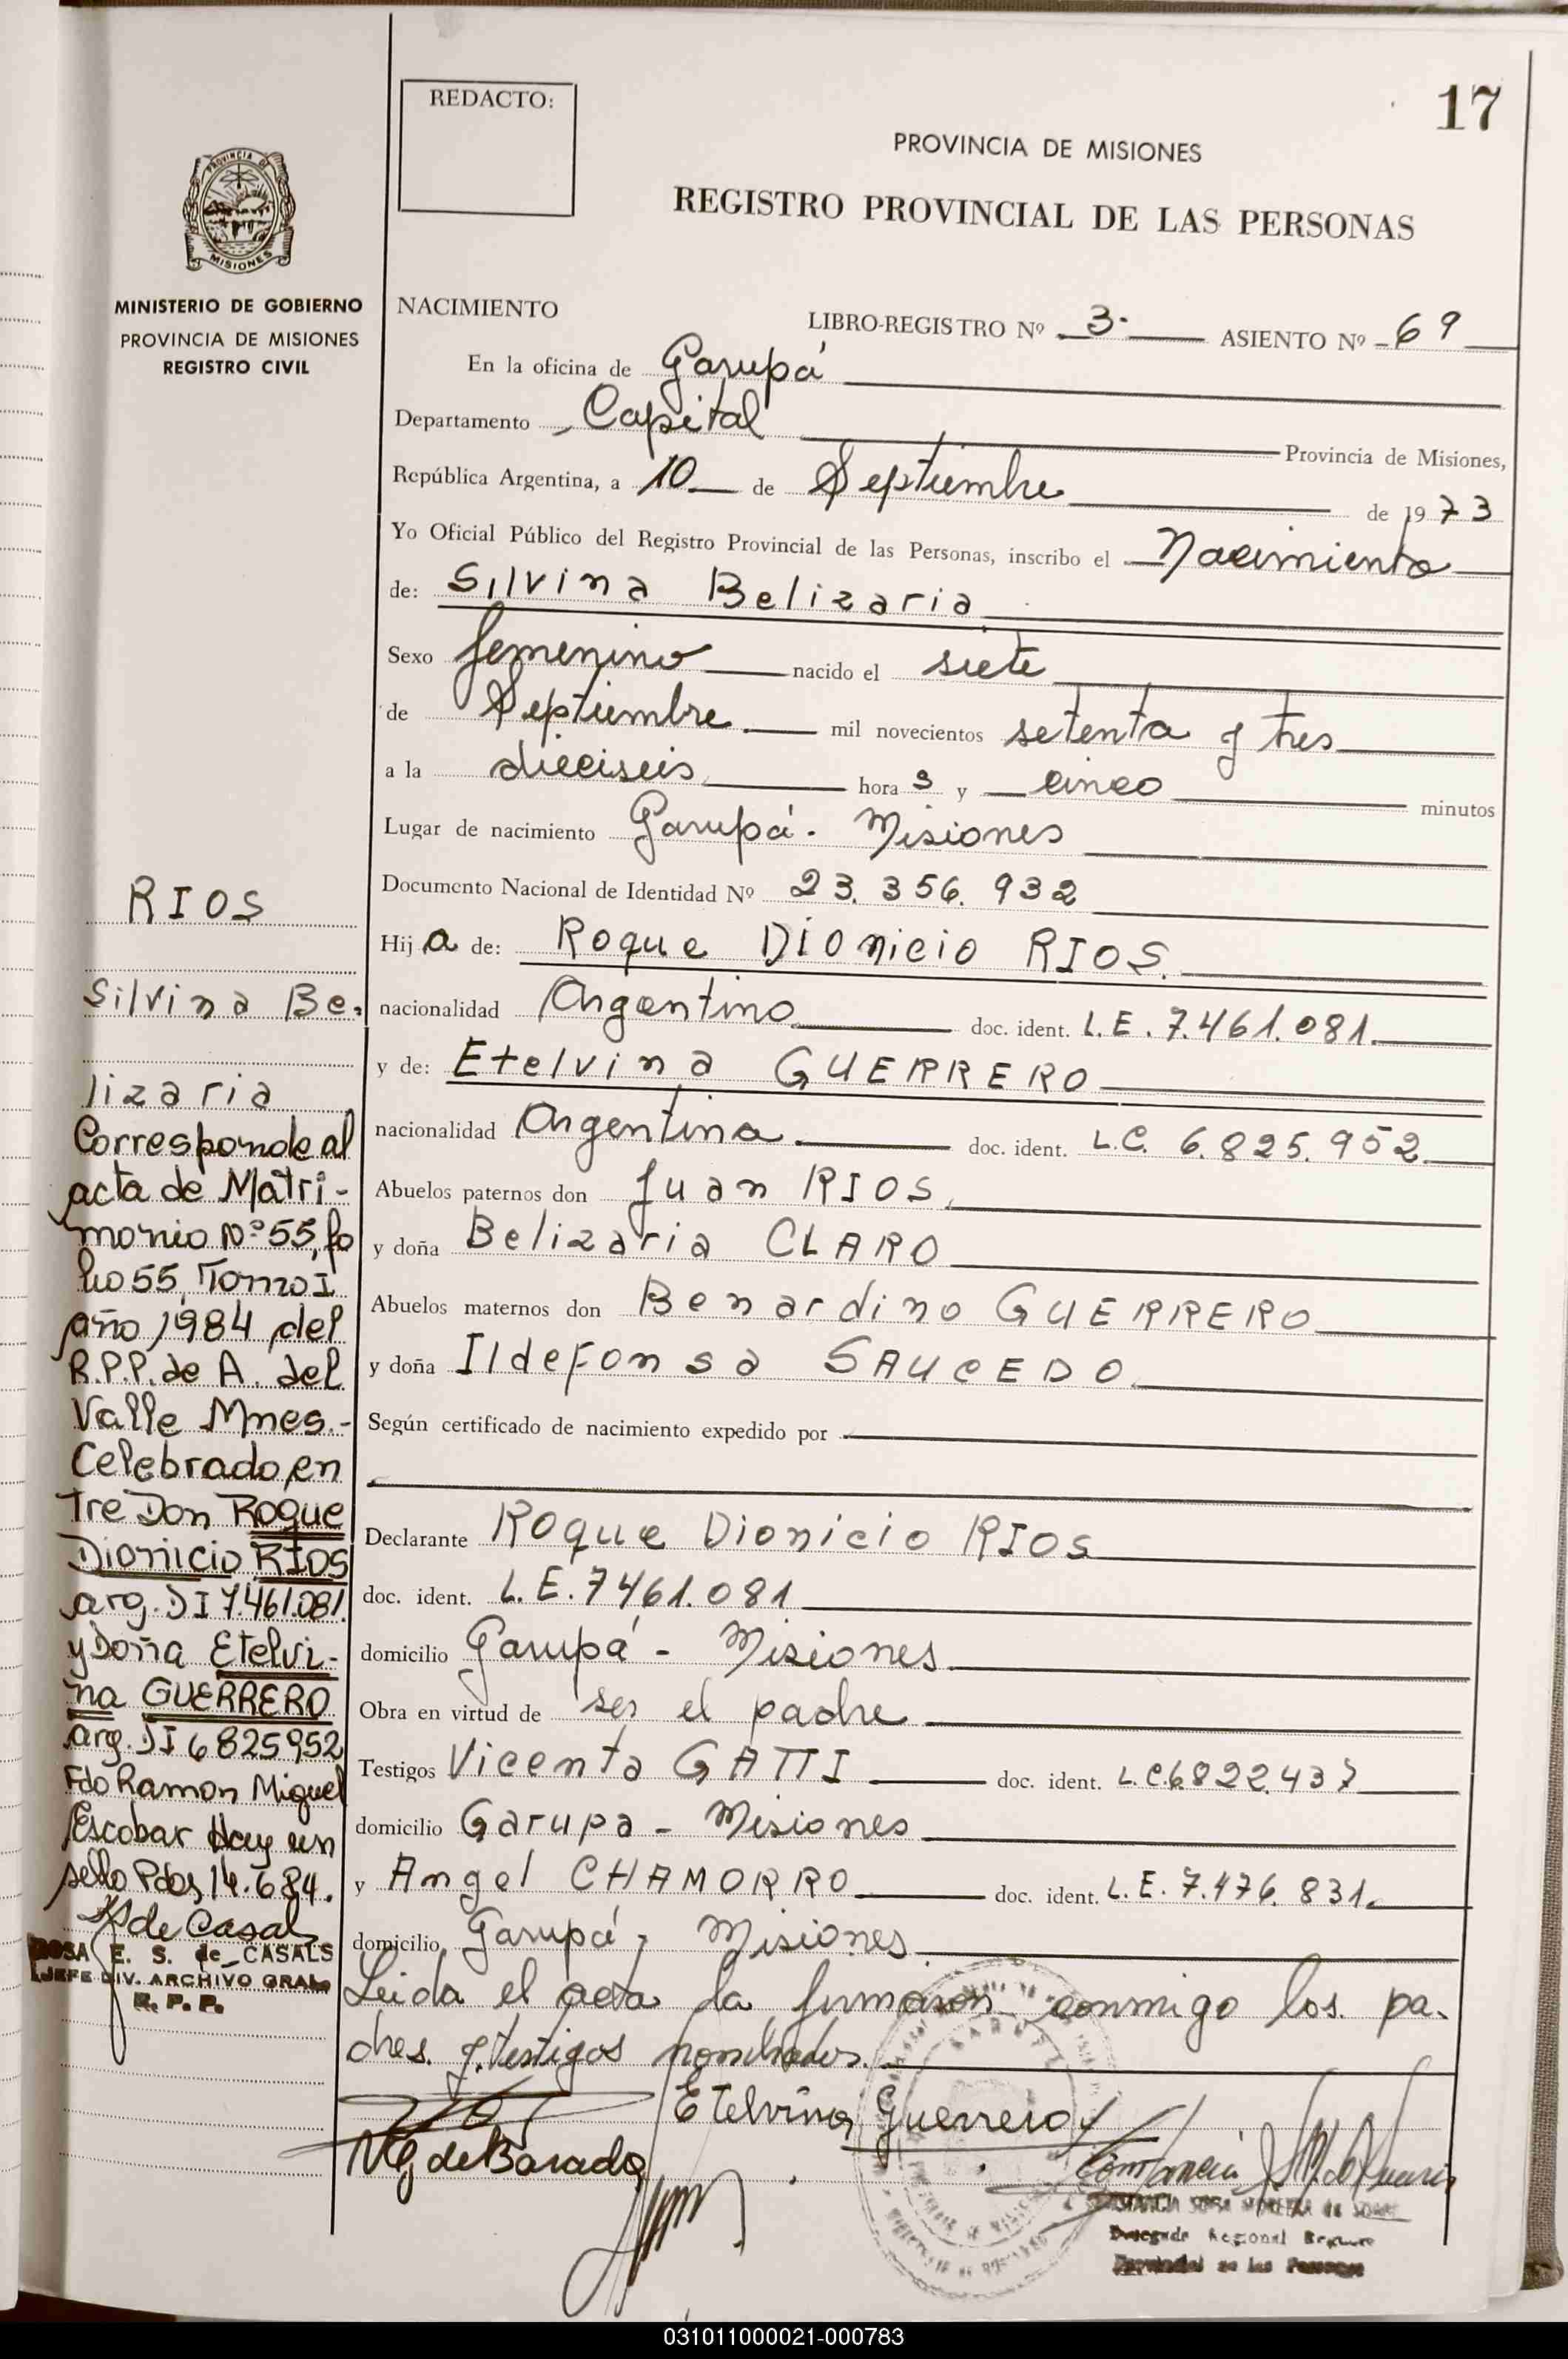 17
REDACTO:
PROVINCIA DE MISIONES
REGISTRO PROVINCIAL DE LAS PERSONAS
PROVINCIA D
MISIONES
MINISTERIO DE GOBIERNO
PROVINCIA DE MISIONES
REGISTRO CIVIL
NACIMIENTO
LIBRO-REGISTRO Nº 3. ASIENTO Nº 69
En la oficina de Garupá
Departamento Capital Provincia de Misiones,
República Argentina, a 10 de Septiembre de 1973
Yo Oficial Público del Registro Provincial de las Personas, inscribo el Nacimiento
de: Silvina Belizaria
Sexo femenino nacido el siete
de Septiembre mil novecientos setenta y tres
a la dieciseis hora s y cinco minutos
Lugar de nacimiento Garupá. Misiones
Documento Nacional de Identidad Nº 23.356.932
Hij a de: Roque Dionicio RIOS.
nacionalidad Argentino doc. ident. L.E. 7.461.081.
y de: Etelvina GUERRERO
nacionalidad Argentina doc. ident. L.C. 6.825.952
Abuelos paternos don Juan RIOS.
y doña Belizaria CLARO
Abuelos maternos don Benardino GUERRERO
y doña Ildefonsa SAUCEDO.
Según certificado de nacimiento expedido por
Declarante Roque Dionicio RIOS
doc. ident. L.E. 7461.081
domicilio Garupá - Misiones
Obra en virtud de ser el padre
Testigos Vicenta GATTI doc. ident. L.C.6822.437
domicilio Garupa - Misiones
y Angel CHAMORRO doc. ident. L.E. 7.476.831.
domicilio Garupá, Misiones
Leida el acta la firmaron conmigo los pa-
dres y testigos nombrados.
Etelvina Guerrero
VG de Barada
Delegada Regional Registro
Provincial de las Personas
RIOS
Silvina Be-
lizaria
Corresponde al
acta de Matri-
monio Nº 55, fo
lio 55, Tomo I
año 1984 del
R.P.P. de A. del
Valle Mnes.-
Celebrado en
tre Don Roque
Dionicio RIOS
arg. DI 7.461.081.
y Doña Etelvi-
na GUERRERO
arg. DI 6825952
Fdo Ramon Miguel
Escobar Hay un
sello Pdas, 14.6.84.
de Casal
ROSA E. S. de CASALS
JEFE DIV. ARCHIVO GRAL
R. P. P.
031011000021-000783